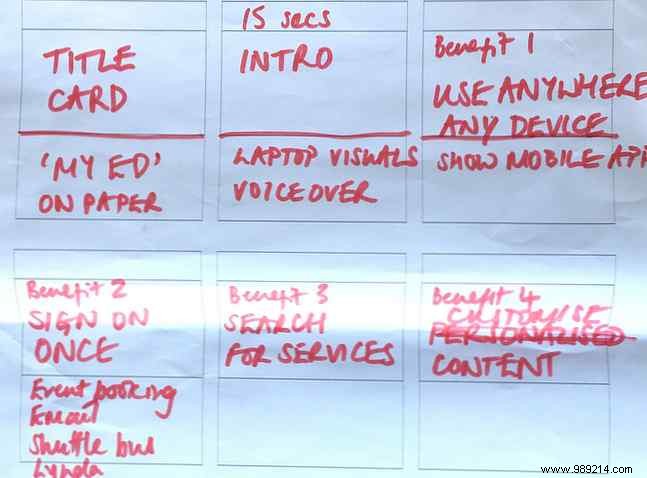 TITLE
CARD
'MY ED'
ON PAPER
15 secs
INTRO
LAPTOP VISUALS
VOICEOVER
Benefit 1
USE ANYWHERE
ANY DEVICE
SHOW MOBILE APP
Benefit 2
SIGN ON
ONCE
Event booking
Email
Shuttle bus
Lynda
Benefit 3
SEARCH
FOR SERVICES
Benefit 4
CUSTOMISE
PERSONALISED
CONTENT
www.989214.com